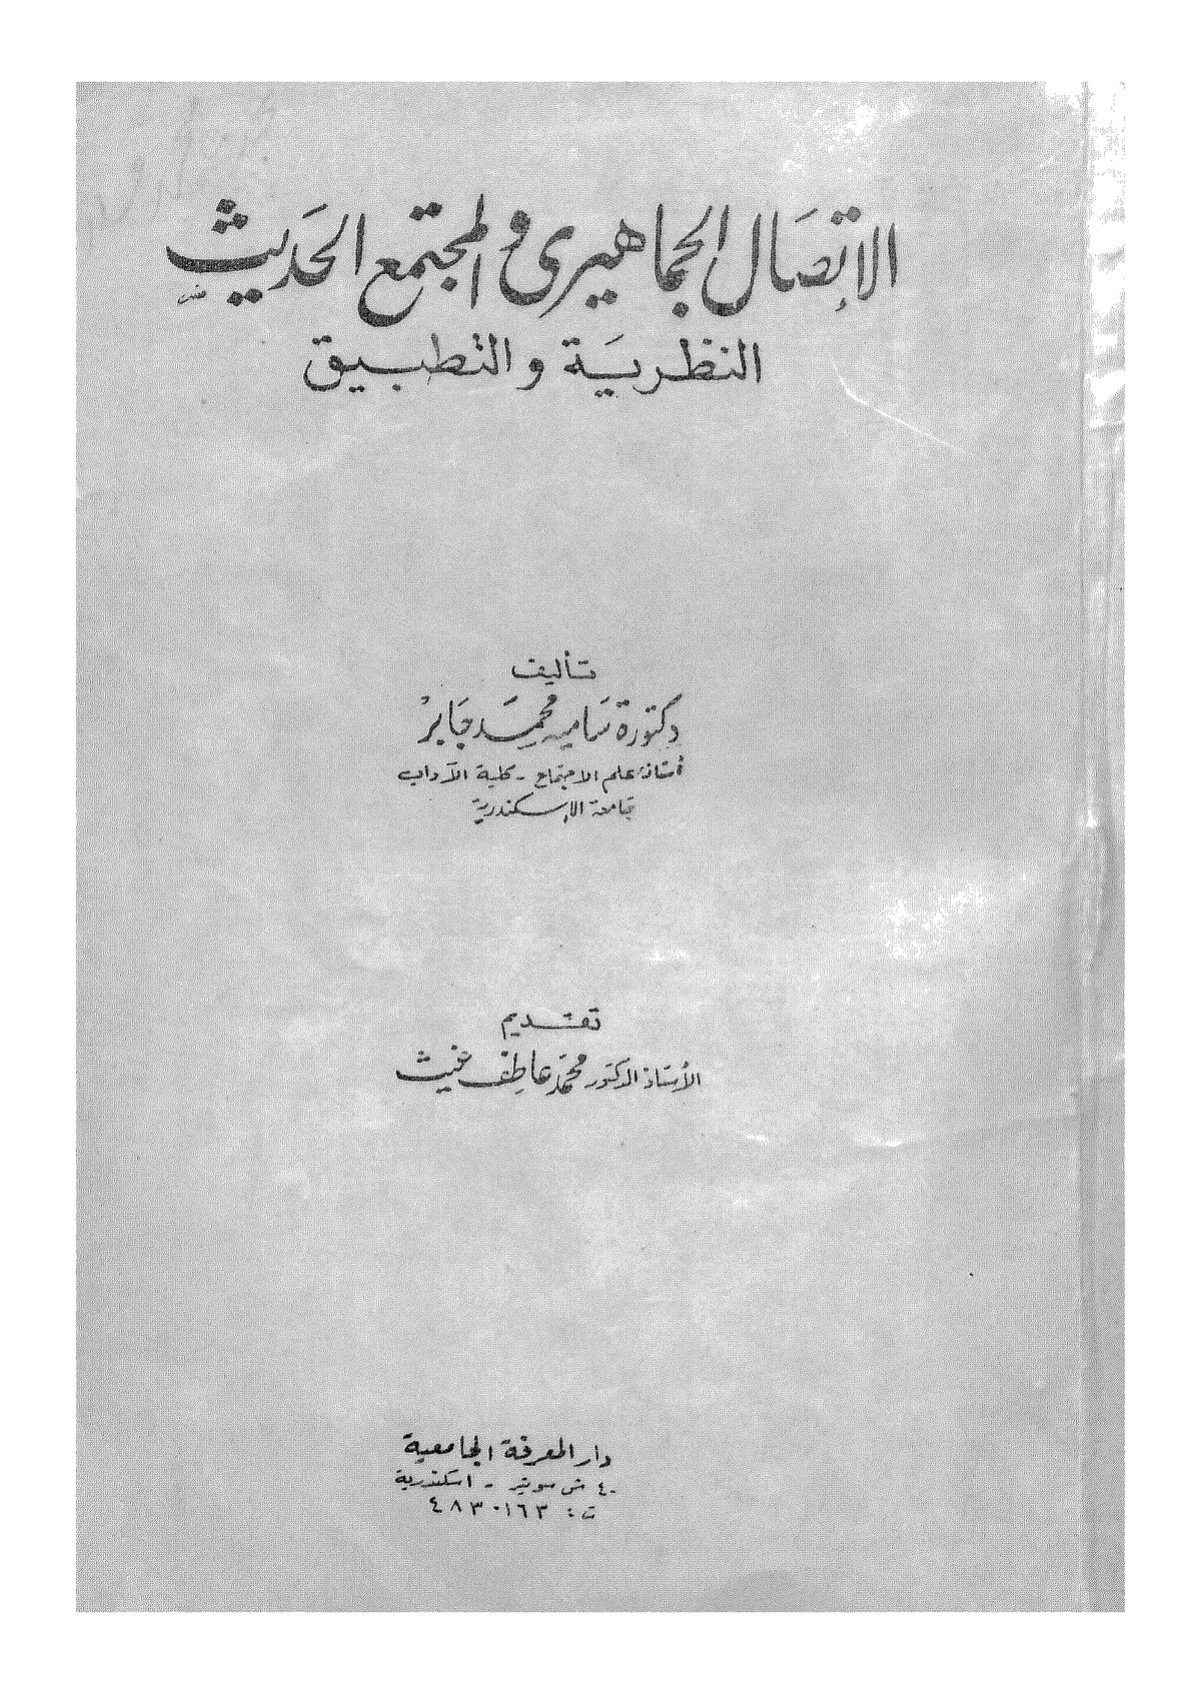 الإتصال الجماهيرى فى المجتمع الحديث
النظرية والتطبيق
تأليف
دكتورة سامية محمد جابر
أستاذ علم الاجتماع - كلية الآداب
جامعة الإسكندرية
تقديم
الأستاذ الدكتور محمد عاطف غيث
دار المعرفة الجامعية
٤٠ ش سوتير - اسكندرية
ت : ٤٨٣٠١٦٣